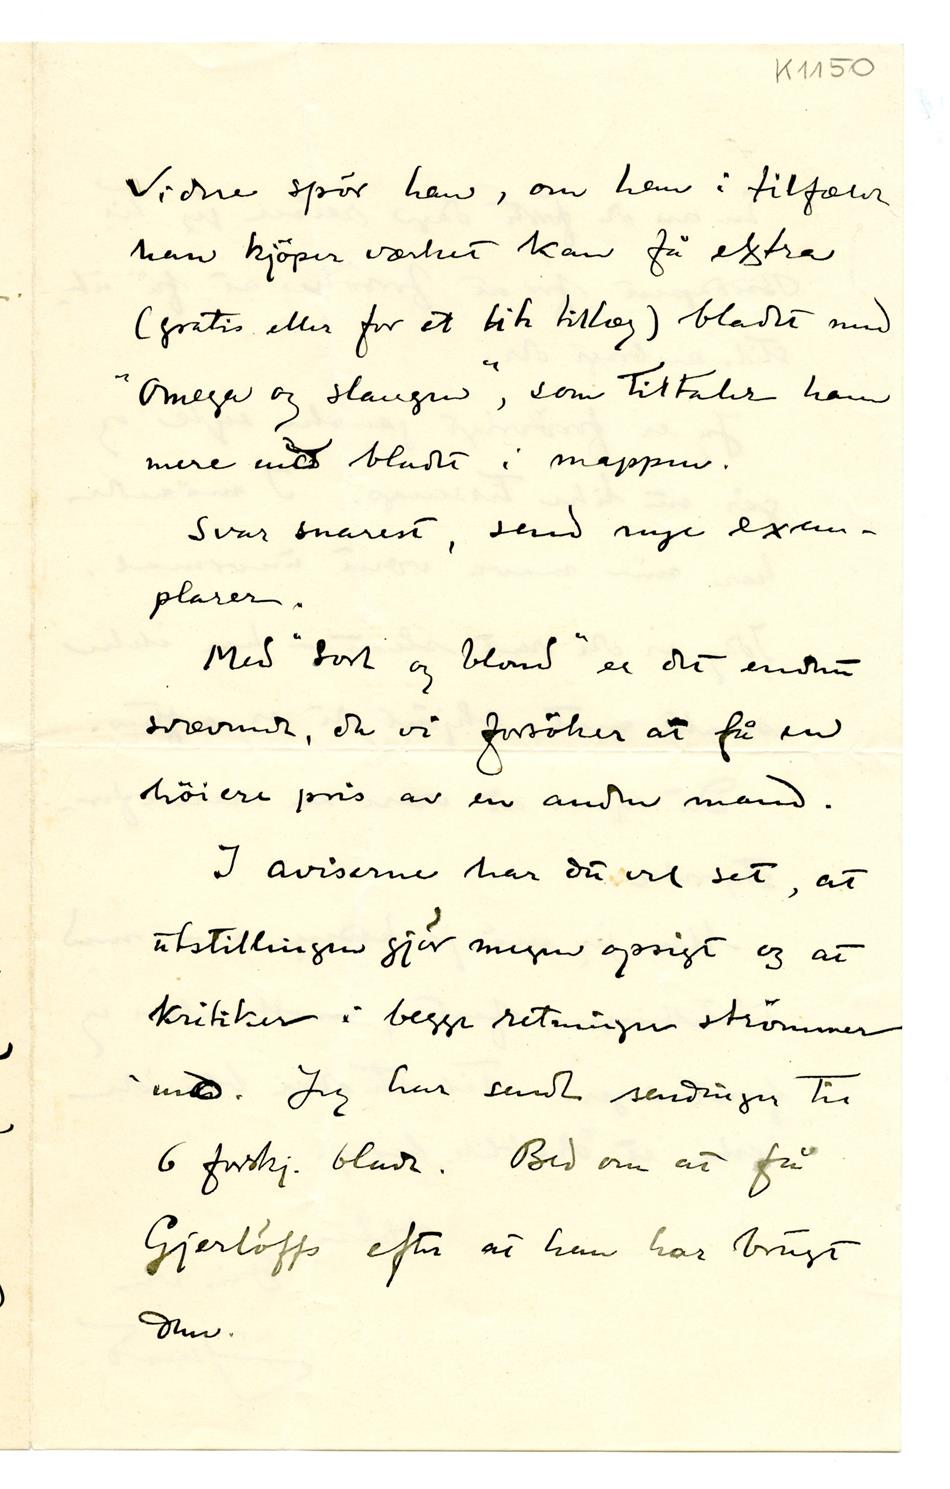 K1150
Vidre spör han, om han i tilfælde
han kjöper værket kan få extra
(gratis eller for et lite tillæg) bladet med
"Omega og slangen", som tiltaler ham
mere end bladet i mappen.
Svar snarest, send nye exem-
plarer.
Med "Sort og blond" er det endnu
svævende, da vi forsöker at få en
höiere pris av en anden mand.
I aviserne har du vel set, at
utstillingen gjör megen opsigt og at
kritiker i begge retninger strömmer
ind. Jeg har sendt sendinger til
6 forskj. blade. Bed om at få
Gjerlöffs efter at han har brugt
den.